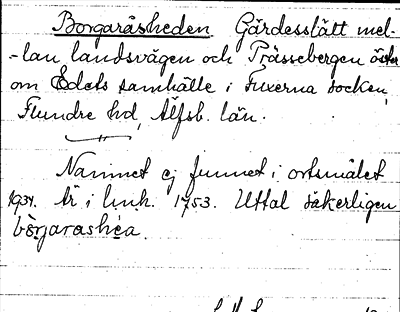 Borgaråsheden Gärdesslätt mel-
-lan landsvägen och Prässebergen öster
om Edets samhälle i Fuxerna socken,
Flundre hd, Älfsb. län.
Namnet ej funnet i ortsmålet
1934. Är i 1753. Uttal säkerligen